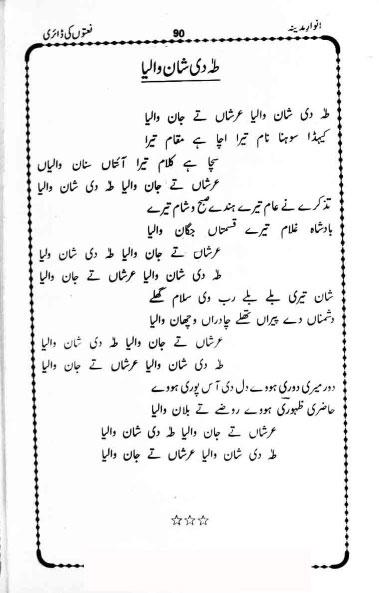 انوار مدینہ 90 نعتوں کی ڈائری
طہٰ دی شان والیا
طہٰ دی شان والیا عرشاں تے جان والیا
کیہڈا سوہنا نام تیرا اچا ہے مقام تیرا
سچا ہے کلام تیرا آئتاں سنان والیاں
عرشاں تے جان والیا طہٰ دی شان والیا
تذکرے نے عام تیرے ہندے صبح و شام تیرے
بادشاہ غلام تیرے قسمتاں جگان والیا
عرشاں تے جان والیا طہٰ دی شان ولیا
طہٰ دی شان والیا عرشاں تے جان والیا
شان تیری بلے بلے رب وی سلام گھلے
دشمناں دے پیراں تھلے چادراں وچھان والیا
عرشاں تے جان والیا طہٰ دی شان والیا
طہٰ دی شان والیا عرشاں تے جان والیا
دور میری دوری ہووے دل دی آس پوری ہووے
حاضری ظہوریؔ ہووے روضے تے بلان والیا
عرشاں تے جان والیا طہٰ دی شان والیا
طہٰ دی شان والیا عرشاں تے جان والیا